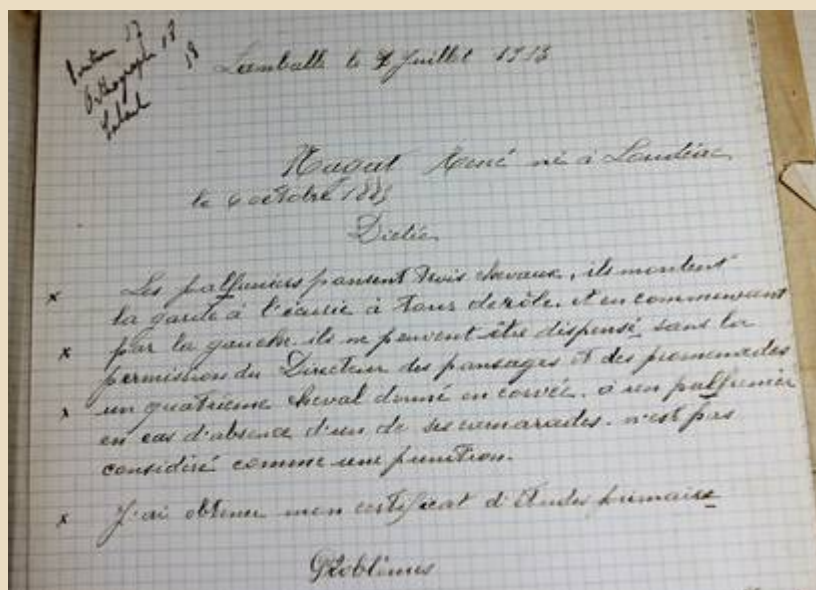 17
Orthographe 18
Calcul 18
Lamballe le 7 Juillet 1913
René né à Loudéac
le 6 octobre 1883
Dictée
Les palfreniers pansent trois chevaux, ils montent
la garde à l'écurie à tour de rôle, et en commencant
par la gauche. ils ne peuvent être dispensé sans la
permission du Directeur des pansages et des promenades
un quatrieme cheval donné en corvée. à un palfrenier
en cas d'absence d'un de ses camarades. n'est pas
considéré comme une punition.
J'ai obtenue mon certificat d'Etudes primaire
Problèmes